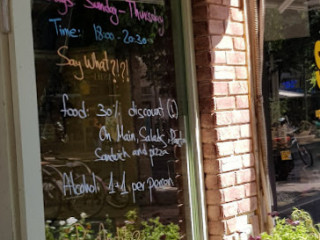 Sunday - Thursday
Time: 18:00 - 20:30
Say What?!?!
food: 30% discount (!)
On Main, Salads, Pasta
Sandwich and pizza
Alcohol: 1+1 per person